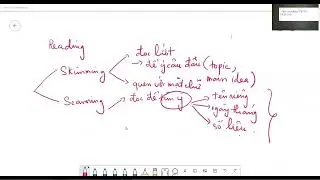 Reading
Skimming
đọc lướt
→ để ý câu đầu (topic,
main idea)
quen với mặt chữ
Scanning
đọc để tìm ý
tên riêng
ngày tháng
số liệu